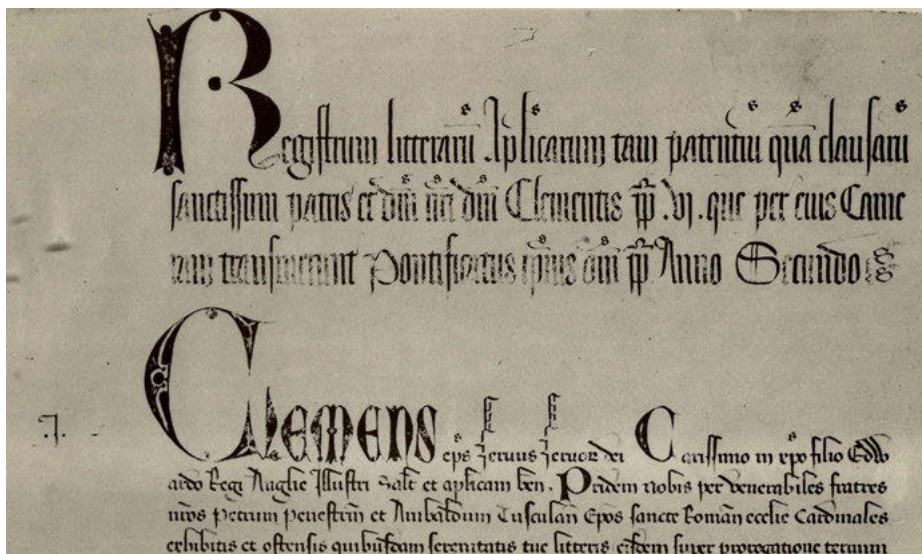 Registrum litterarū Aplicarum tam patentiū quā clausarū
sanctissimi patris et dñi nri dñi Clementis pp .vj. que per eius Came
ram transierunt Pontificatus ipius dñi pp Anno Secundo
.J.
Clemens eps seruus seruor dei Carissimo in xpo filio Edw
ardo Regi Anglie Illustri Salt et aplicam ben. Pridem nobis per venerabiles fratres
nros Petrum Penestrin et Anibaldum Tusculan Epos sancte Roman ecclie Cardinales
exhibitis et ostensis quibusdam serenitatis tue litteris eisdem super prorogatione terminı